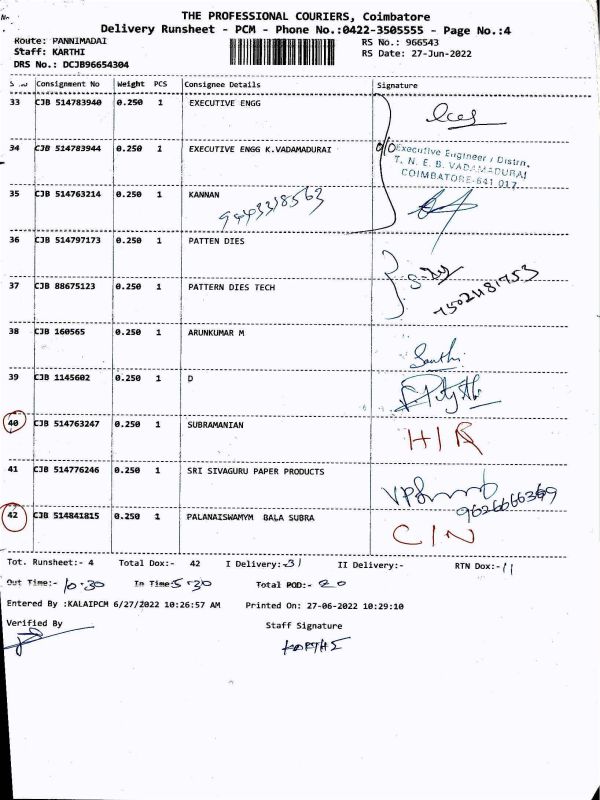 THE PROFESSIONAL COURIERS, Coimbatore
Delivery Runsheet - PCM - Phone No.:0422-3505555 - Page No.:4
Route: PANNIMADAI RS No.: 966543
Staff: KARTHI RS Date: 27-Jun-2022
DRS No.: DCJB96654304
Consignment No Weight PCS Consignee Details Signature
33 CJB 514783940 0.250 1 EXECUTIVE ENGG
34 CJB 514783944 0.250 1 EXECUTIVE ENGG K.VADAMADURAI
O/O Executive Engineer / Distrn.
T. N. E. B. VADAMADURAI
COIMBATORE-641 017
35 CJB 514763214 0.250 1 KANNAN
9443318563
36 CJB 514797173 0.250 1 PATTEN DIES
37 CJB 88675123 0.250 1 PATTERN DIES TECH
38 CJB 160565 0.250 1 ARUNKUMAR M
39 CJB 1145602 0.250 1 D
40 CJB 514763247 0.250 1 SUBRAMANIAN
41 CJB 514776246 0.250 1 SRI SIVAGURU PAPER PRODUCTS
42 CJB 514841815 0.250 1 PALANAISWAMYM BALA SUBRA
C/N
Tot. Runsheet:- 4 Total Dox:- 42 I Delivery:- 31 II Delivery:- RTN Dox:- 11
Out Time:- 10.30 In Time 5.30 Total POD:- 20
Entered By :KALAIPCM 6/27/2022 10:26:57 AM Printed On: 27-06-2022 10:29:10
Verified By Staff Signature